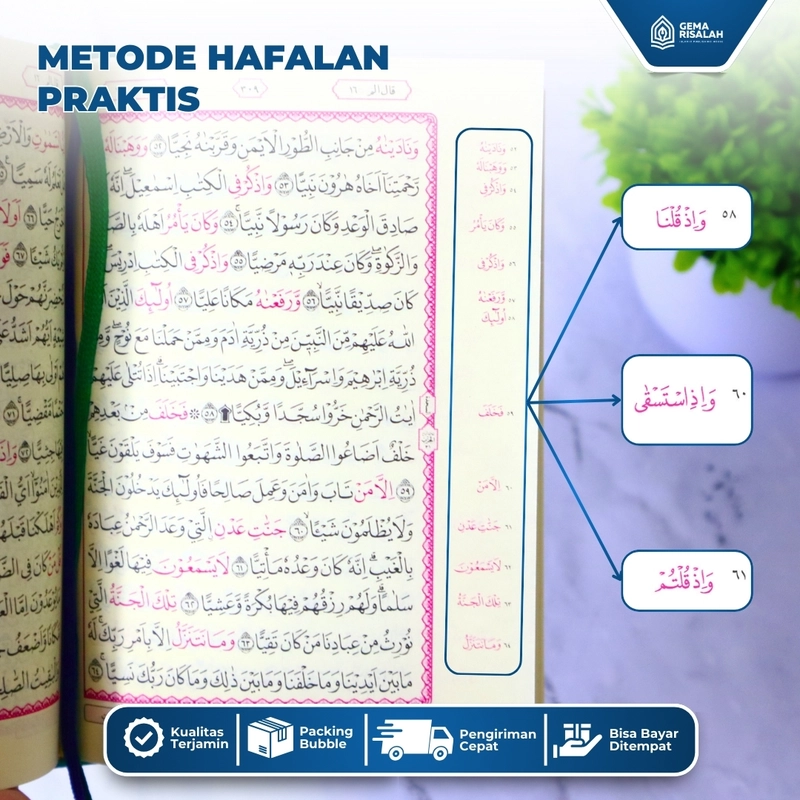 GEMA
RISALAH
METODE HAFALAN
PRAKTIS
قال الم ١٦
٣٠٩
وَنَادَيْنٰهُ مِنْ جَانِبِ الطُّوْرِ الْاَيْمَنِ وَقَرَّبْنٰهُ نَجِيًّا ﴿٥٢﴾ وَوَهَبْنَا لَهٗ
رَحْمَتِنَآ اَخَاهُ هٰرُوْنَ نَبِيًّا ﴿٥٣﴾ وَاذْكُرْ فِى الْكِتٰبِ اِسْمٰعِيْلَ اِنَّهٗ
صَادِقَ الْوَعْدِ وَكَانَ رَسُوْلًا نَّبِيًّا ﴿٥٤﴾ وَكَانَ يَأْمُرُ اَهْلَهٗ بِالصَّ
وَالزَّكٰوةِ وَكَانَ عِنْدَ رَبِّهٖ مَرْضِيًّا ﴿٥٥﴾ وَاذْكُرْ فِى الْكِتٰبِ اِدْرِيْسَ
كَانَ صِدِّيْقًا نَّبِيًّا ﴿٥٦﴾ وَّرَفَعْنٰهُ مَكَانًا عَلِيًّا ﴿٥٧﴾ اُولٰۤىِٕكَ الَّذِيْنَ
اللّٰهُ عَلَيْهِمْ مِّنَ النَّبِيّٖنَ مِنْ ذُرِّيَّةِ اٰدَمَ وَمِمَّنْ حَمَلْنَا مَعَ نُوْحٍ وَّمِ
ذُرِّيَّةِ اِبْرٰهِيْمَ وَاِسْرَاۤءِيْلَ وَمِمَّنْ هَدَيْنَا وَاجْتَبَيْنَا اِذَا تُتْلٰى عَلَيْهِمْ
اٰيٰتُ الرَّحْمٰنِ خَرُّوْا سُجَّدًا وَّبُكِيًّا ﴿٥٨﴾ فَخَلَفَ مِنْ بَعْدِهِمْ
خَلْفٌ اَضَاعُوا الصَّلٰوةَ وَاتَّبَعُوا الشَّهَوٰتِ فَسَوْفَ يَلْقَوْنَ غَيًّا
﴿٥٩﴾ اِلَّا مَنْ تَابَ وَاٰمَنَ وَعَمِلَ صَالِحًا فَاُولٰۤىِٕكَ يَدْخُلُوْنَ الْجَنَّةَ
وَلَا يُظْلَمُوْنَ شَيْـًٔا ﴿٦٠﴾ جَنّٰتِ عَدْنِ ࣙالَّتِيْ وَعَدَ الرَّحْمٰنُ عِبَادَهٗ
بِالْغَيْبِ اِنَّهٗ كَانَ وَعْدُهٗ مَأْتِيًّا ﴿٦١﴾ لَا يَسْمَعُوْنَ فِيْهَا لَغْوًا اِلَّا
سَلٰمًا وَلَهُمْ رِزْقُهُمْ فِيْهَا بُكْرَةً وَّعَشِيًّا ﴿٦٢﴾ تِلْكَ الْجَنَّةُ الَّتِيْ
نُوْرِثُ مِنْ عِبَادِنَا مَنْ كَانَ تَقِيًّا ﴿٦٣﴾ وَمَا نَتَنَزَّلُ اِلَّا بِاَمْرِ رَبِّكَ لَهٗ
مَا بَيْنَ اَيْدِيْنَا وَمَا خَلْفَنَا وَمَا بَيْنَ ذٰلِكَ وَمَا كَانَ رَبُّكَ نَسِيًّا ﴿٦٤﴾
٥٢ وَنَادَيْنٰهُ
٥٣ وَوَهَبْنَا لَهٗ
٥٤ وَاذْكُرْ فِى
٥٥ وَكَانَ يَأْمُرُ
٥٦ وَاذْكُرْ فِى
٥٧ وَّرَفَعْنٰهُ
٥٨ اُولٰۤىِٕكَ
٥٩ فَخَلَفَ
٦٠ اِلَّا مَنْ
٦١ جَنّٰتِ عَدْنٍ
٦٢ لَا يَسْمَعُوْنَ
٦٣ تِلْكَ الْجَنَّةُ
٦٤ وَمَا نَتَنَزَّلُ
٥٨ وَاِذْ قُلْنَا
٦٠ وَاِذِ اسْتَسْقٰى
٦١ وَاِذْ قُلْتُمْ
Kualitas
Terjamin
Packing
Bubble
Pengiriman
Cepat
Bisa Bayar
Ditempat